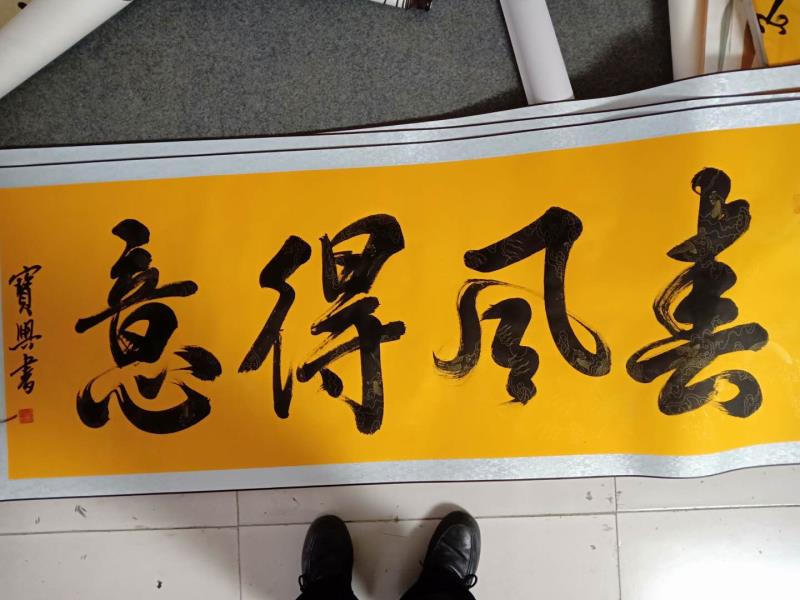 春風得意
寶興書